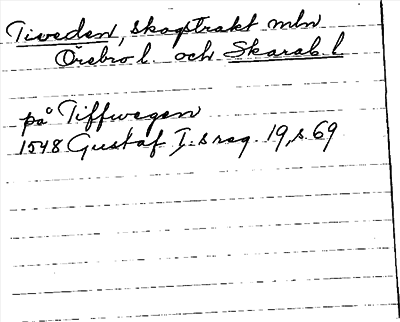 Tiveden, skogstrakt mln
Örebro l. och Skarab. l
på Tiffwegen
1548 Gustaf I:s reg. 19, s. 69